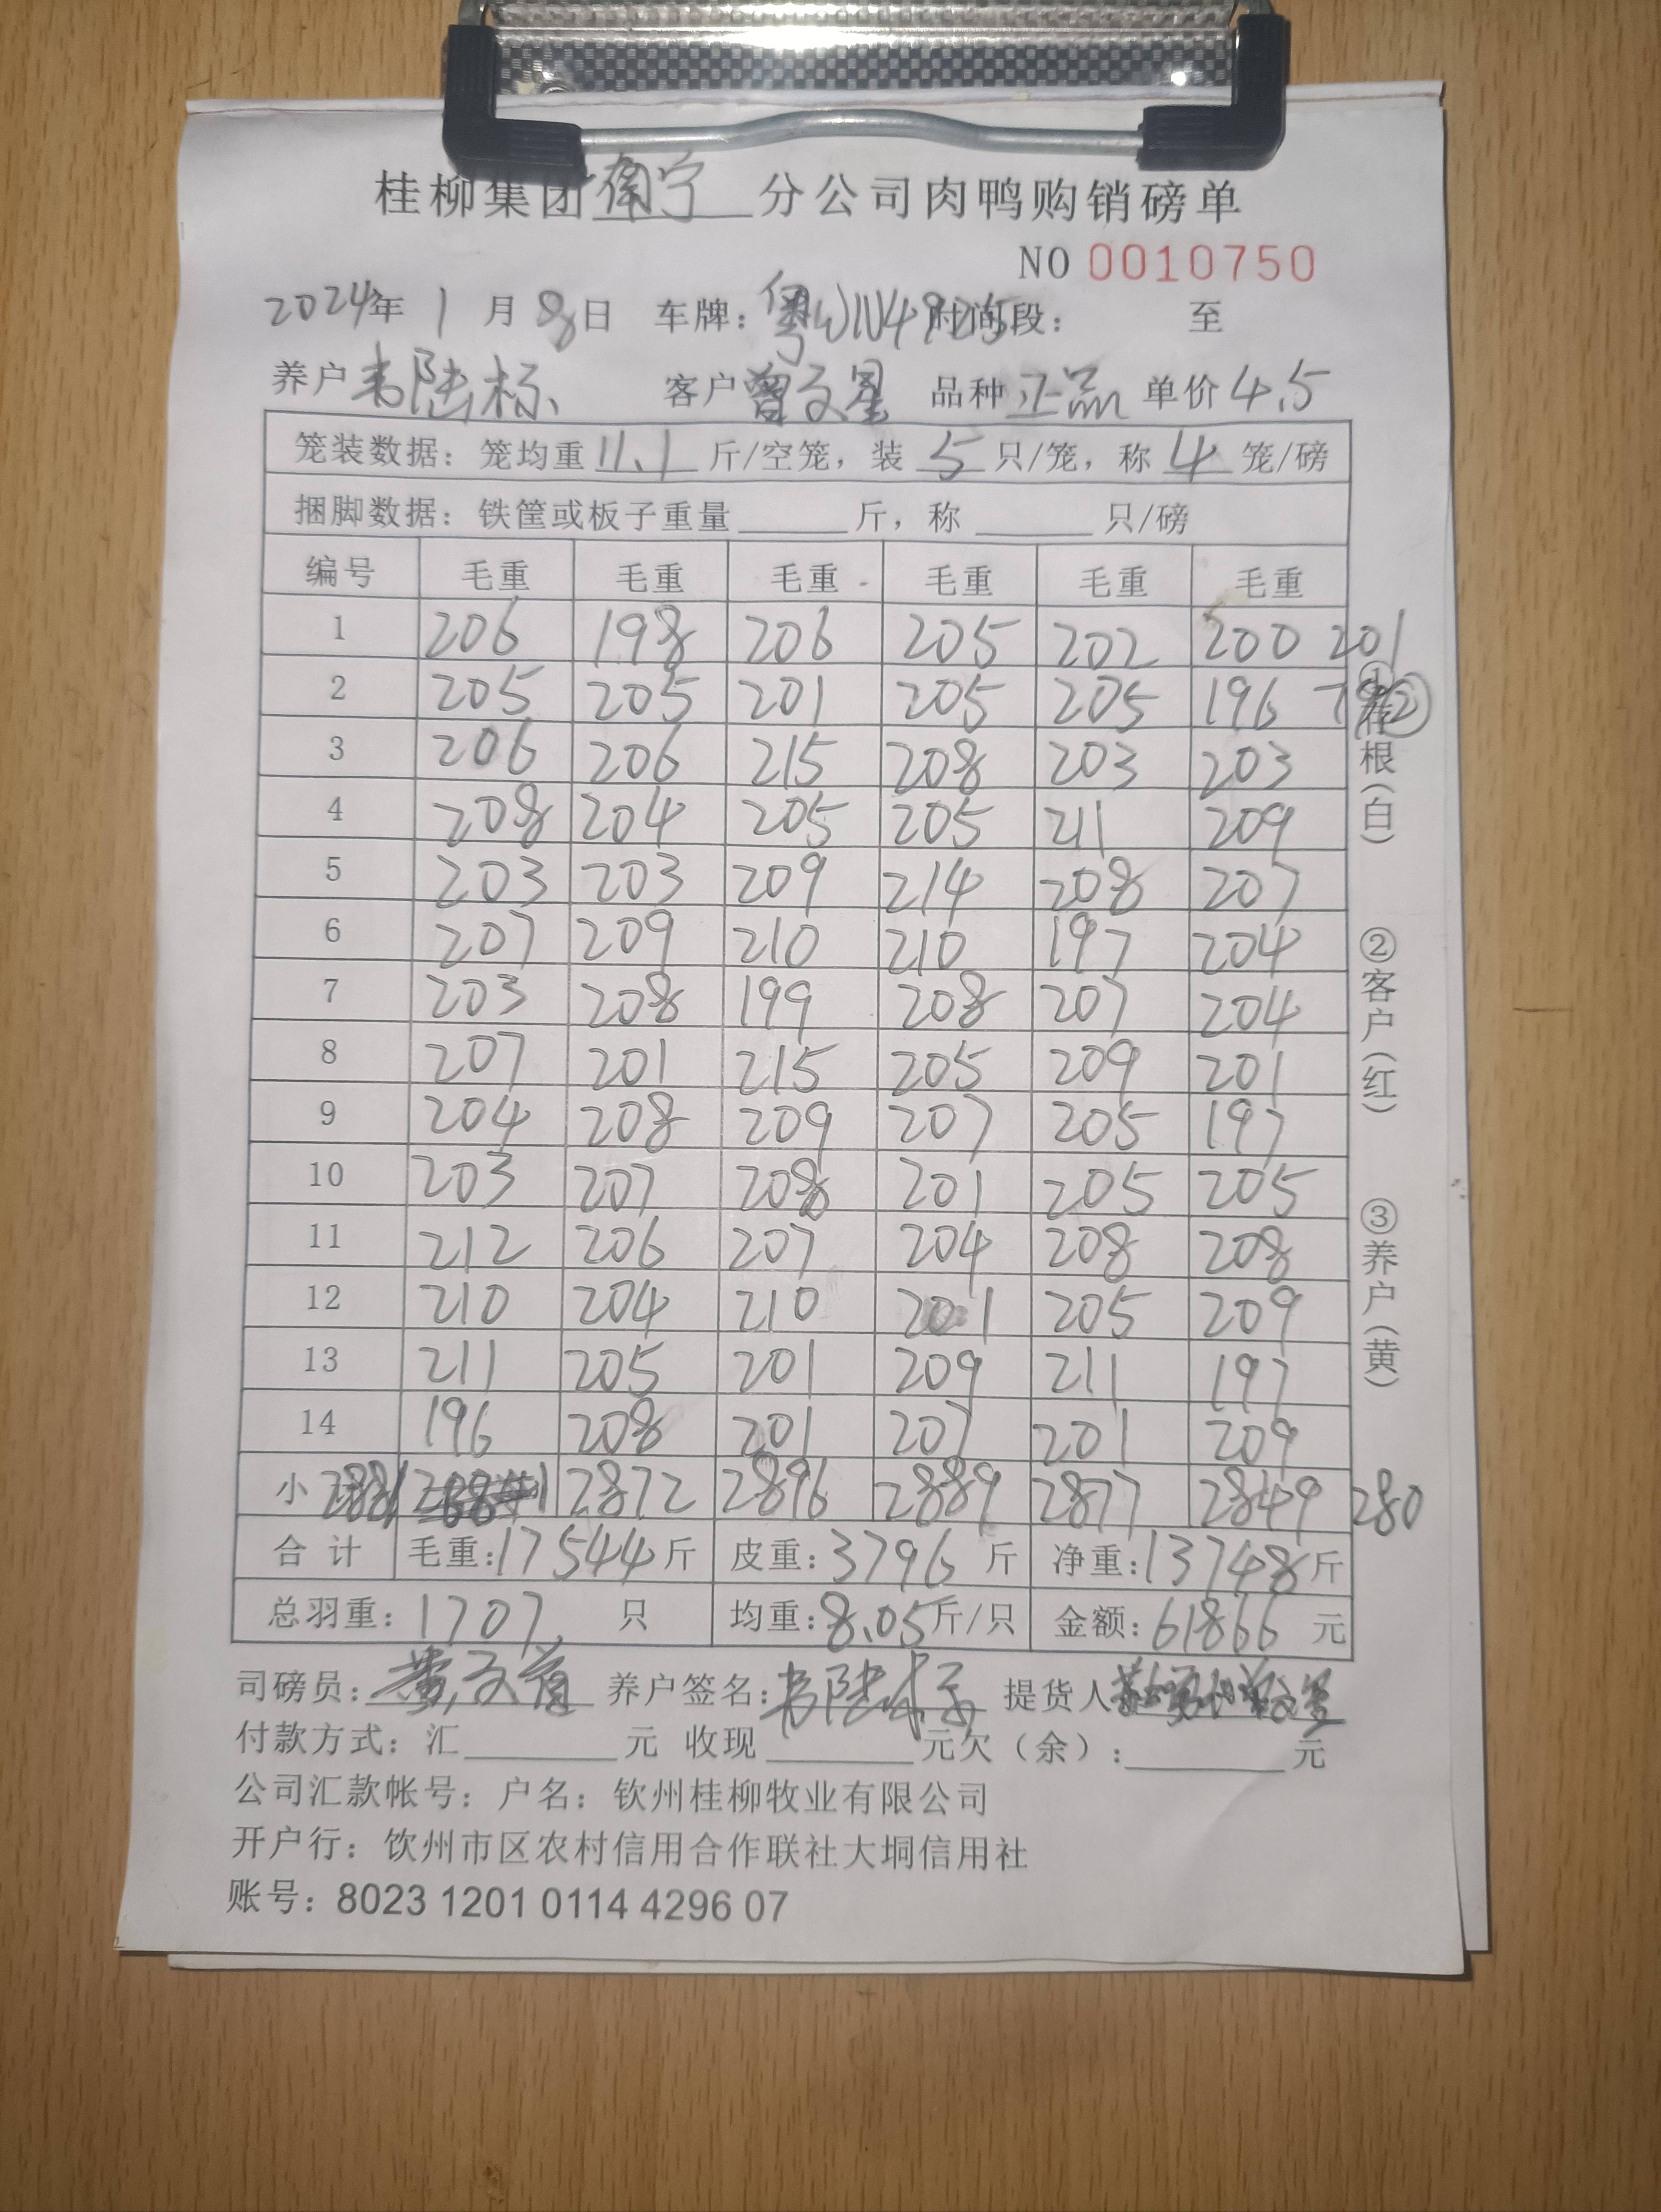 桂柳集团南宁分公司肉鸭购销磅单
NO 0010750
2024年 1 月 8日 车牌：粤WN4925 时间段： 至
养户 韦陆标 客户 曾文星 品种 正品 单价 4.5
笼装数据：笼均重 11.1 斤/空笼，装 5 只/笼，称 4 笼/磅
捆脚数据：铁筐或板子重量 斤，称 只/磅
编号 毛重 毛重 毛重 毛重 毛重 毛重
1 206 198 206 205 202 200 201
2 205 205 201 205 205 196 79②
3 206 206 215 208 203 203
4 208 204 205 205 211 209
5 203 203 209 214 208 207
6 207 209 210 210 197 204
7 203 208 199 208 207 204
8 207 201 215 205 209 201
9 204 208 209 207 205 197
10 203 207 208 201 205 205
11 212 206 207 204 208 208
12 210 204 210 201 205 209
13 211 205 201 209 211 197
14 196 208 201 207 201 209
小 2881 2872 2896 2889 2877 2849 280
合计 毛重：17544斤 皮重：3796 斤 净重：13748斤
总羽重：1707 只 均重：8.05斤/只 金额：61866 元
司磅员： 养户签名：韦陆标 提货人
付款方式：汇 元 收现 元欠（余）： 元
公司汇款帐号：户名：钦州桂柳牧业有限公司
开户行：饮州市区农村信用合作联社大垌信用社
账号：8023 1201 0114 4296 07
①存根（白）
②客户（红）
③养户（黄）